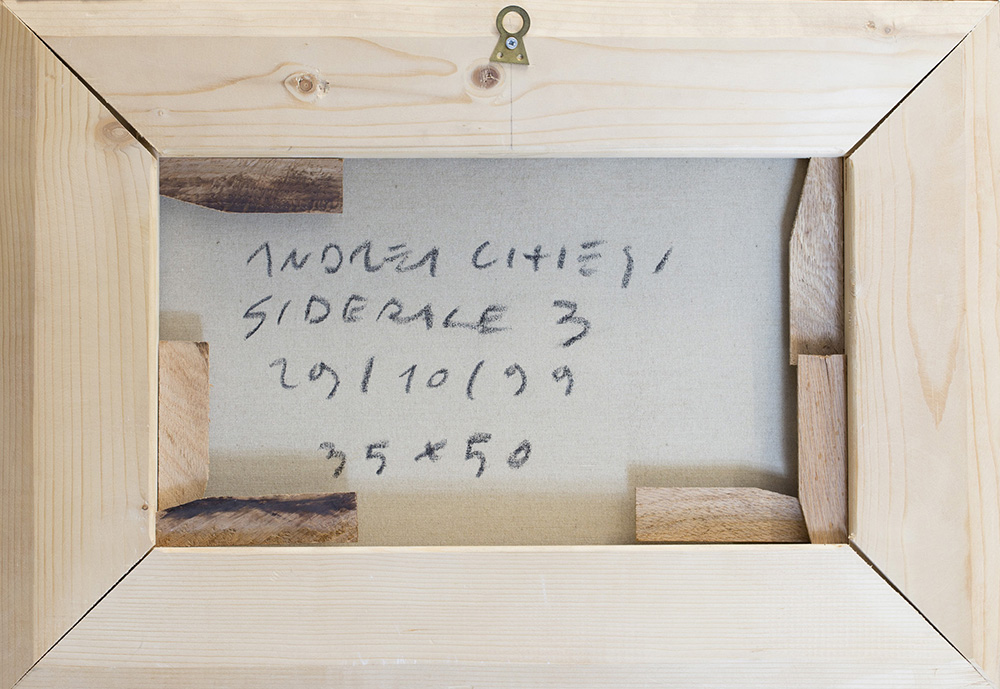 ANDREA CHIESI
SIDERALE 3
29/10/99
35x50